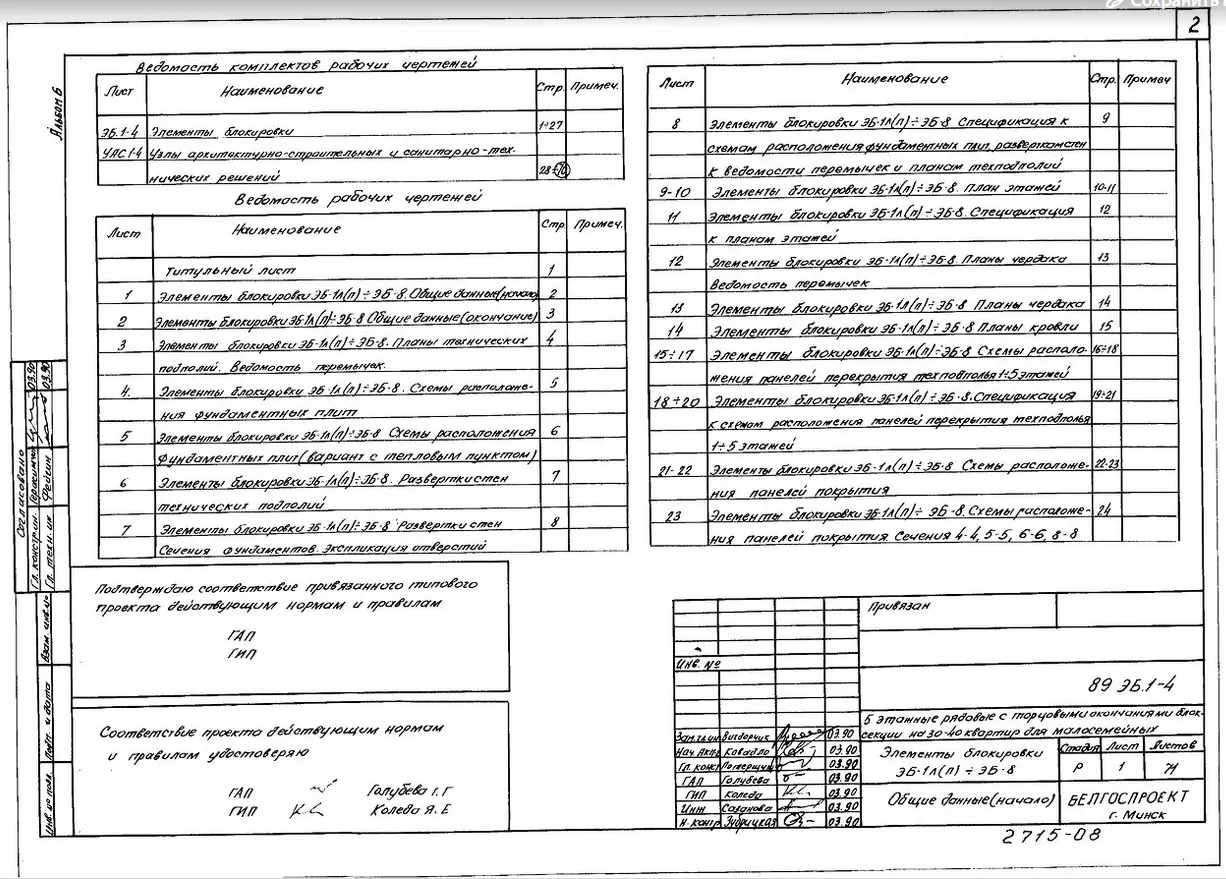 Сохранить
2
Альбом 6
Ведомость комплектов рабочих чертежей
Лист Наименование Стр. Примеч.
ЭБ.1-4 Элементы блокировки 1÷27
УАС 1-4 Узлы архитектурно-строительных и санитарно-тех-
нических решений 28÷
Ведомость рабочих чертежей
Лист Наименование Стр. Примеч.
Титульный лист 1
1 Элементы блокировки ЭБ-1л(п)÷ЭБ-8. Общие данные(начало) 2
2 Элементы блокировки ЭБ-1л(п)÷ЭБ-8 Общие данные(окончание) 3
3 Элементы блокировки ЭБ-1л(п)÷ЭБ-8. Планы технических 4
подполий. Ведомость перемычек.
4. Элементы блокировки ЭБ-1л(п)÷ЭБ-8. Схемы расположе- 5
ния фундаментных плит
5 Элементы блокировки ЭБ-1л(п)÷ЭБ-8 Схемы расположения 6
фундаментных плит(вариант с тепловым пунктом)
6 Элементы блокировки ЭБ-1л(п)÷ЭБ-8. Развертки стен 7
технических подполий
7 Элементы блокировки ЭБ-1л(п)÷ЭБ-8 Развертки стен 8
Сечения фундаментов. Экспликация отверстий
Лист Наименование Стр. Примеч
8 Элементы блокировки ЭБ-1л(п)÷ЭБ-8 Спецификация к 9
схемам расположения фундаментных плит, разверткам стен
к ведомости перемычек и планам техподполий
9-10 Элементы блокировки ЭБ-1л(п)÷ЭБ-8. План этажей 10-11
11 Элементы блокировки ЭБ-1л(п)÷ЭБ-8. Спецификация 12
к планам этажей
12 Элементы блокировки ЭБ-1л(п)÷ЭБ-8. Планы чердака 13
Ведомость перемычек
13 Элементы блокировки ЭБ-1л(п)÷ЭБ-8 Планы чердака 14
14 Элементы блокировки ЭБ-1л(п)÷ЭБ-8 Планы кровли 15
15÷17 Элементы блокировки ЭБ-1л(п)÷ЭБ-8 Схемы располо- 16÷18
жения панелей перекрытия техподполья 1÷5 этажей
18÷20 Элементы блокировки ЭБ-1л(п)÷ЭБ-8. Спецификация 19÷21
к схемам расположения панелей перекрытия техподполья
1÷5 этажей
21-22 Элементы блокировки ЭБ-1л(п)÷ЭБ-8 Схемы расположе- 22-23
ния панелей покрытия
23 Элементы блокировки ЭБ-1л(п)÷ ЭБ-8. Схемы расположе- 24
ния панелей покрытия Сечения 4-4, 5-5, 6-6, 8-8
Согласовано
Гл. констр. ин. Герасимчик 03.90
Гл. техн. ин. Фейгин 03.90
Взам. инв. №
Подп. и дата
Инв. № подл.
Подтверждаю соответствие привязанного типового
проекта действующим нормам и правилам
ГАП
ГИП
Соответствие проекта действующим нормам
и правилам удостоверяю
ГАП Голубева Г.Г
ГИП Коледа Я.Е
Привязан
Инв. №
89 ЭБ.1-4
5 этажные рядовые с торцовыми окончаниями блок-
секции на 30-40 квартир для малосемейных
Зам.гл.ин 03.90
Нач. Ковадло 03.90
Гл. конс 03.90
ГАП Голубева 03.90
ГИП Коледа 03.90
Инж Сазанова 03.90
Н. контр Зубрицкая 03.90
Элементы блокировки
ЭБ-1л(п)÷ЭБ-8
Стадия Лист Листов
Р 1 71
Общие данные(начало)
БЕЛГОСПРОЕКТ
г. Минск
2715-08